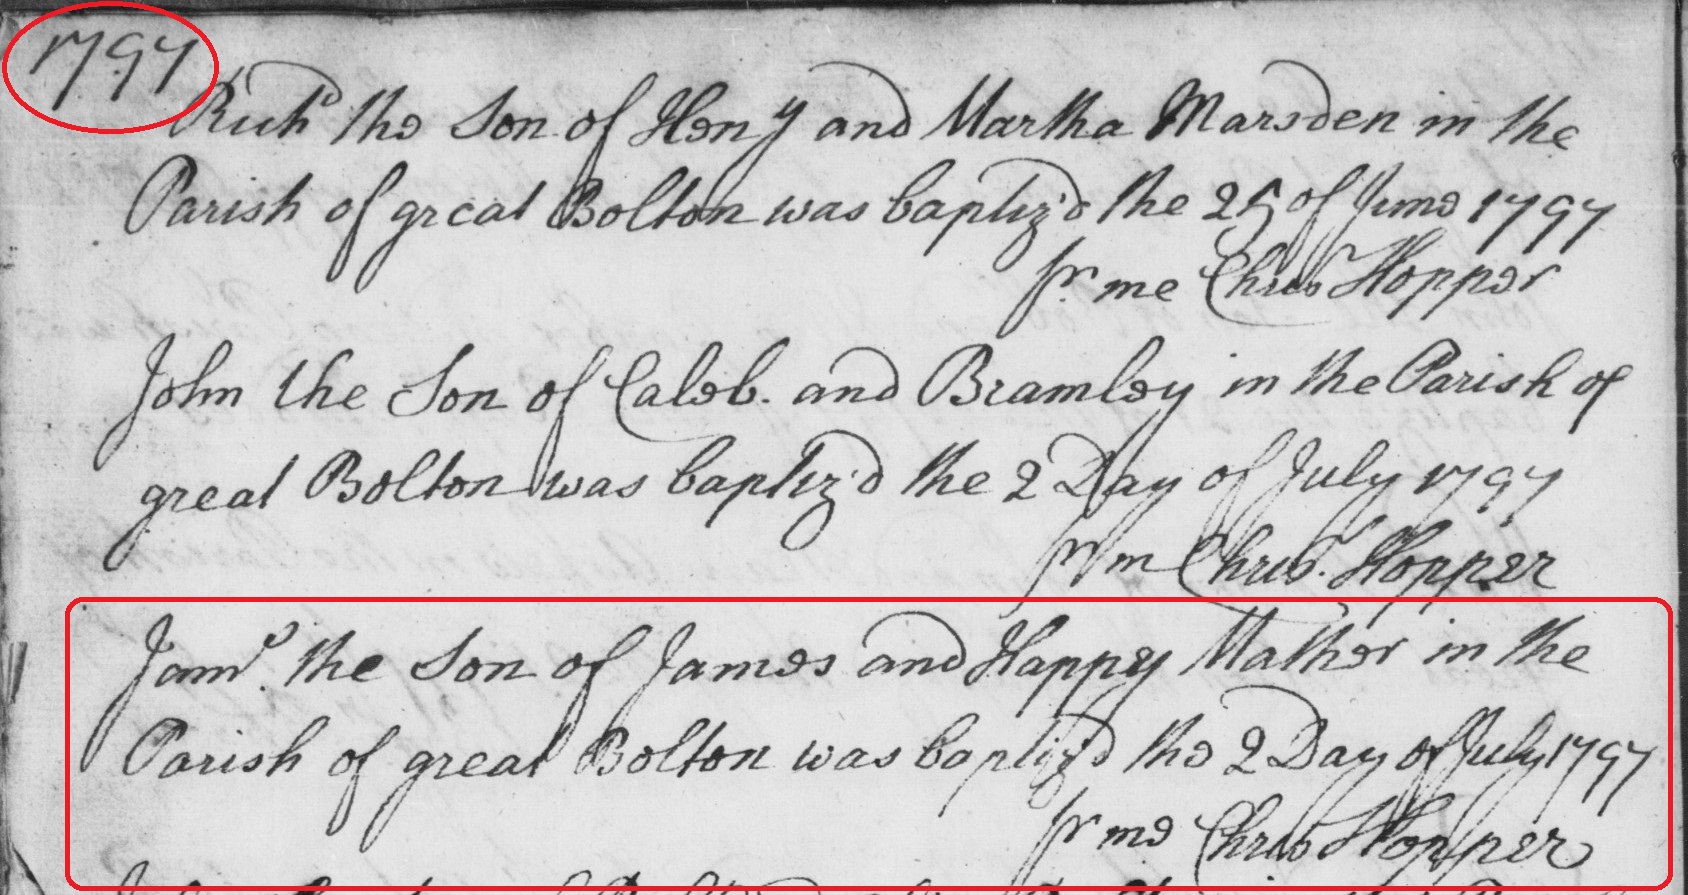 1797
Richd the Son of Heny and Martha Marsden in the
Parish of great Bolton was baptiz'd the 25 of June 1797
pr. me Chris Hopper
John the Son of Caleb. and Bramley in the Parish of
great Bolton was baptiz'd the 2 Day of July 1797
pr m Chris. Hopper
Jams. the Son of James and Happy Mather in the
Parish of great Bolton was baptiz'd the 2 Day of July 1797
pr me Chris Hopper